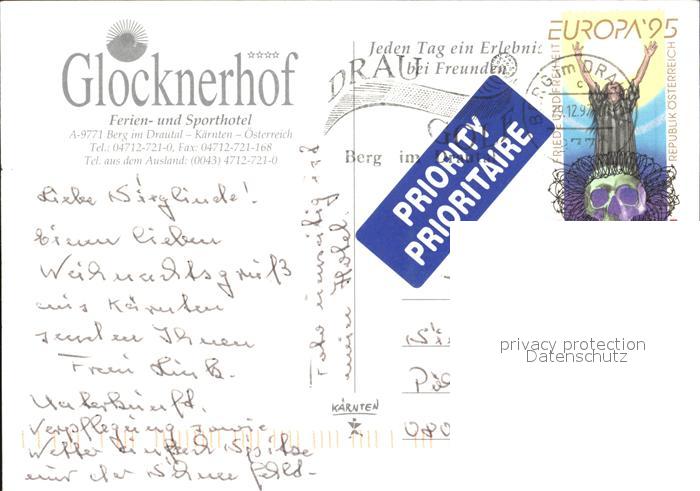 Glocknerhof
Ferien- und Sporthotel
A-9771 Berg im Drautal – Kärnten – Österreich
Tel.: 04712-721-0, Fax: 04712-721-168
Tel. aus dem Ausland: (0043) 4712-721-0
Jeden Tag ein Erlebnis
bei Freunden
DRAU
GOLD
Berg im Drautal
BERG im DRAU
9.12.97
977
EUROPA'95
FRIEDE UND FREIHEIT
REPUBLIK ÖSTERREICH
PRIORITY
PRIORITAIRE
Liebe Sieglinde!
Einen lieben
Weihnachtsgruß
aus Kärnten
senden Ihnen
Frau
Unterkunft,
Verpflegung sowie
Wetter einfach Spitze
nur der Schnee fehlt-
Foto umseitig ist
unser Hotel.
KÄRNTEN
080
privacy protection
Datenschutz